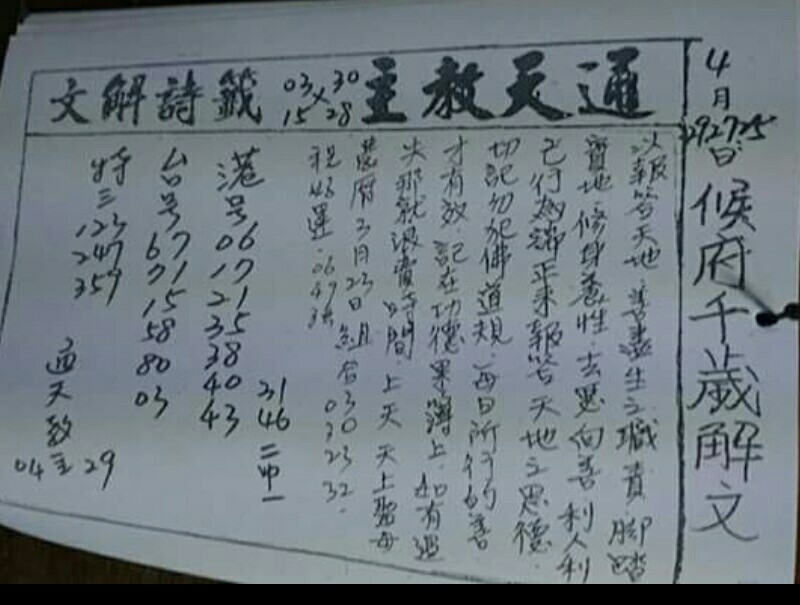 4月
292725
日
候府千歲解文
通天教主
03 x 30
15 28
籤詩解文
以報答天地善盡生之職責腳踏
實地.修身養性.去惡向善利人利
己行為端正來報答天地之恩德.
切記勿犯佛道規.每日所行的善
才有效.記在功德果簿上.如有過
失那就浪費時間.上天天上聖母
農曆3月23日組合03 30 23 32.
祝43運.06 49
港号06 17 21 35 38 40 43
31 46 二中一
台号67 71 15 58 80 03
特三123 247 359
通天教主
04 29